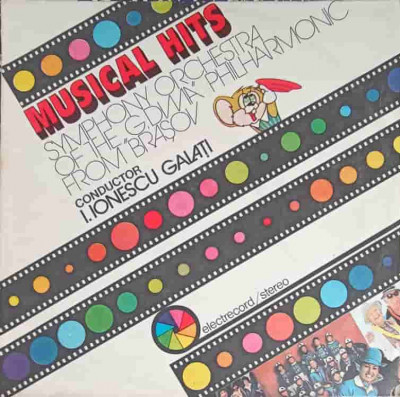 MUSICAL HITS
SYMPHONY ORCHESTRA
OF THE "G.DIMA" PHILHARMONIC
FROM BRAȘOV
CONDUCTOR
I.IONESCU GALAȚI
electrecord/stereo